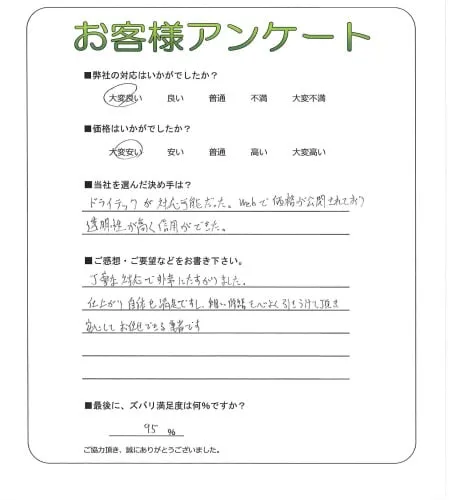 お客様アンケート
■弊社の対応はいかがでしたか？
大変良い 良い 普通 不満 大変不満
■価格はいかがでしたか？
大変安い 安い 普通 高い 大変高い
■当社を選んだ決め手は？
ドライテックが対応可能だった。Webで価格が公開されており
透明性が高く信用ができた。
■ご感想・ご要望などをお書き下さい。
丁寧な対応で非常にたすかりました。
仕上がり自体も満足ですし、細い修路も心よく引きうけて頂き
安心してお任せできる業者です
■最後に、ズバリ満足度は何%ですか？
95 %
ご協力頂き、誠にありがとうございました。